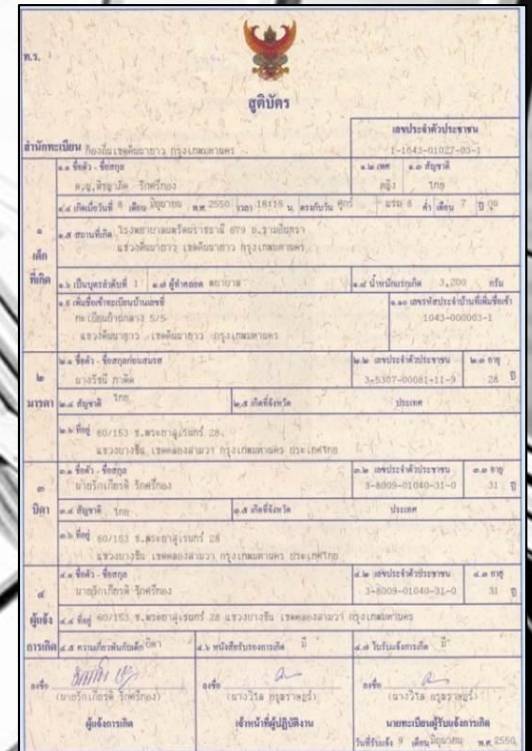 ท.ร. ๑
สูติบัตร
สำนักทะเบียน ท้องถิ่นเขตคันนายาว กรุงเทพมหานคร
เลขประจำตัวประชาชน
1-1043-01027-03-1
๑ เด็กที่เกิด
๑.๑ ชื่อตัว - ชื่อสกุล
ด.ญ. รักศรีทอง
๑.๒ เพศ หญิง
๑.๓ สัญชาติ ไทย
๑.๔ เกิดเมื่อวันที่ 8 เดือน มิถุนายน พ.ศ. 2550 เวลา 18:15 น. ตรงกับวัน ศุกร์ แรม 8 ค่ำ เดือน 7 ปี กุน
๑.๕ สถานที่เกิด โรงพยาบาลนพรัตนราชธานี 679 ถ.รามอินทรา
แขวงคันนายาว เขตคันนายาว กรุงเทพมหานคร
๑.๖ เป็นบุตรลำดับที่ 1
๑.๗ ผู้ทำคลอด พยาบาล
๑.๘ น้ำหนักแรกเกิด 3,200 กรัม
๑.๙ เพิ่มชื่อเข้าทะเบียนบ้านเลขที่
ทะเบียนบ้านกลาง 5/5
แขวงคันนายาว เขตคันนายาว กรุงเทพมหานคร
๑.๑๐ เลขรหัสประจำบ้านที่เพิ่มชื่อเข้า
1043-000003-1
๒ มารดา
๒.๑ ชื่อตัว - ชื่อสกุลก่อนสมรส
นางรัชนี ภาคิด
๒.๒ เลขประจำตัวประชาชน
3-5307-00081-11-9
๒.๓ อายุ
28 ปี
๒.๔ สัญชาติ ไทย
๒.๕ เกิดที่จังหวัด ประเทศ
๒.๖ ที่อยู่ 60/153 ซ.พระยาสุเรนทร์ 28
แขวงบางชัน เขตคลองสามวา กรุงเทพมหานคร ประเทศไทย
๓ บิดา
๓.๑ ชื่อตัว - ชื่อสกุล
นายรักเกียรติ รักศรีทอง
๓.๒ เลขประจำตัวประชาชน
3-8009-01040-31-0
๓.๓ อายุ
31 ปี
๓.๔ สัญชาติ ไทย
๓.๕ เกิดที่จังหวัด ประเทศ
๓.๖ ที่อยู่ 60/153 ซ.พระยาสุเรนทร์ 28
แขวงบางชัน เขตคลองสามวา กรุงเทพมหานคร ประเทศไทย
๔ ผู้แจ้งการเกิด
๔.๑ ชื่อตัว - ชื่อสกุล
นายรักเกียรติ รักศรีทอง
๔.๒ เลขประจำตัวประชาชน
3-8009-01040-31-0
๔.๓ อายุ
31 ปี
๔.๔ ที่อยู่ 60/153 ซ.พระยาสุเรนทร์ 28 แขวงบางชัน เขตคลองสามวา กรุงเทพมหานคร
๔.๕ ความเกี่ยวพันกับเด็ก บิดา
๔.๖ หนังสือรับรองการเกิด มี
๔.๗ ใบรับแจ้งการเกิด มี
ลงชื่อ
(นายรักเกียรติ รักศรีทอง)
ผู้แจ้งการเกิด
ลงชื่อ
(นางวิไล)
เจ้าหน้าที่ผู้ปฏิบัติงาน
ลงชื่อ
(นางวิไล)
นายทะเบียนผู้รับแจ้งการเกิด
วันที่รับแจ้ง 9 เดือน มิถุนายน พ.ศ. 2550